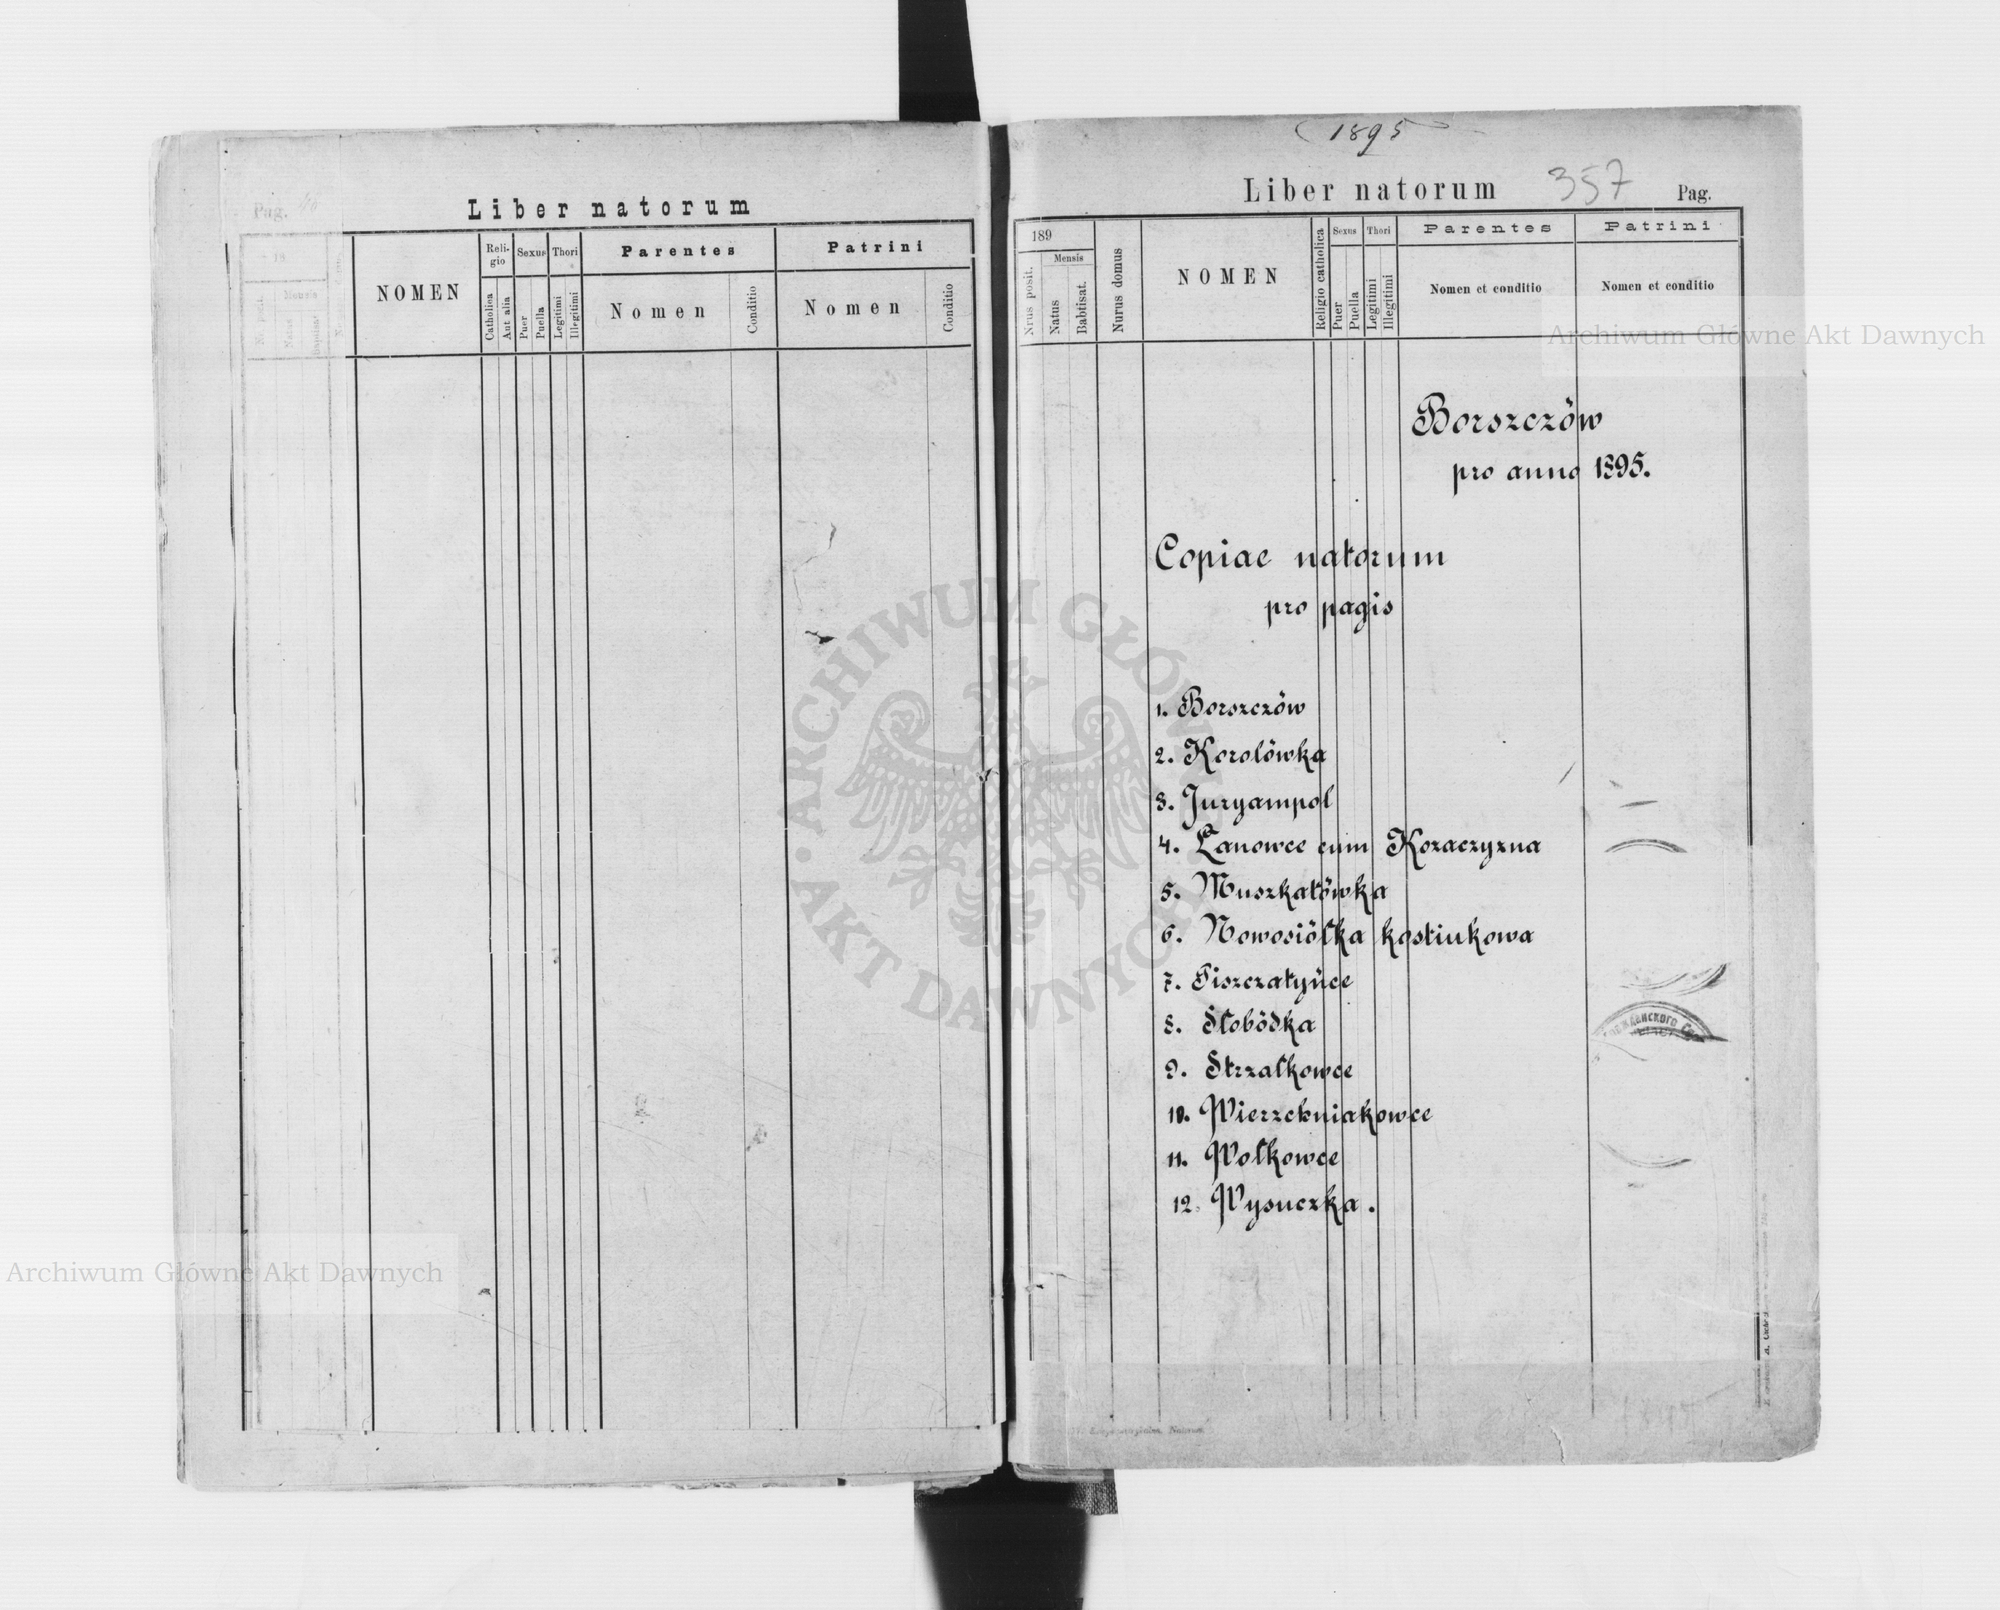 Liber natorum
Pag.
18
NOMEN
Reli-
gio
Sexus
Thori
Parentes
Patrini
Mensis
Catholica
Aut alia
Puer
Puella
Legitimi
Illegitimi
Nomen
Conditio
Nomen
Conditio
1895
Liber natorum
357
Pag.
189
Mensis
Nrus posit.
Natus
Babtisat.
Nurus domus
NOMEN
Religio catholica
Sexus
Thori
Puer
Puella
Legitimi
Illegitimi
Parentes
Patrini
Nomen et conditio
Nomen et conditio
Borszczów
pro anno 1895.
Copiae natorum
pro pagis
1. Borszczów
2. Korolówka
3. Juryampol
4. Łanowce cum Kozaczyzna
5. Muszkatówka
6. Nowosiółka kostiukowa
7. Piszczatyńce
8. Słobódka
9. Strzałkowce
10. Wierzchniakowce
11. Wołkowce
12. Wysuczka.
Archiwum Główne Akt Dawnych
Archiwum Główne Akt Dawnych
ARCHIWUM GŁÓWNE
AKT DAWNYCH